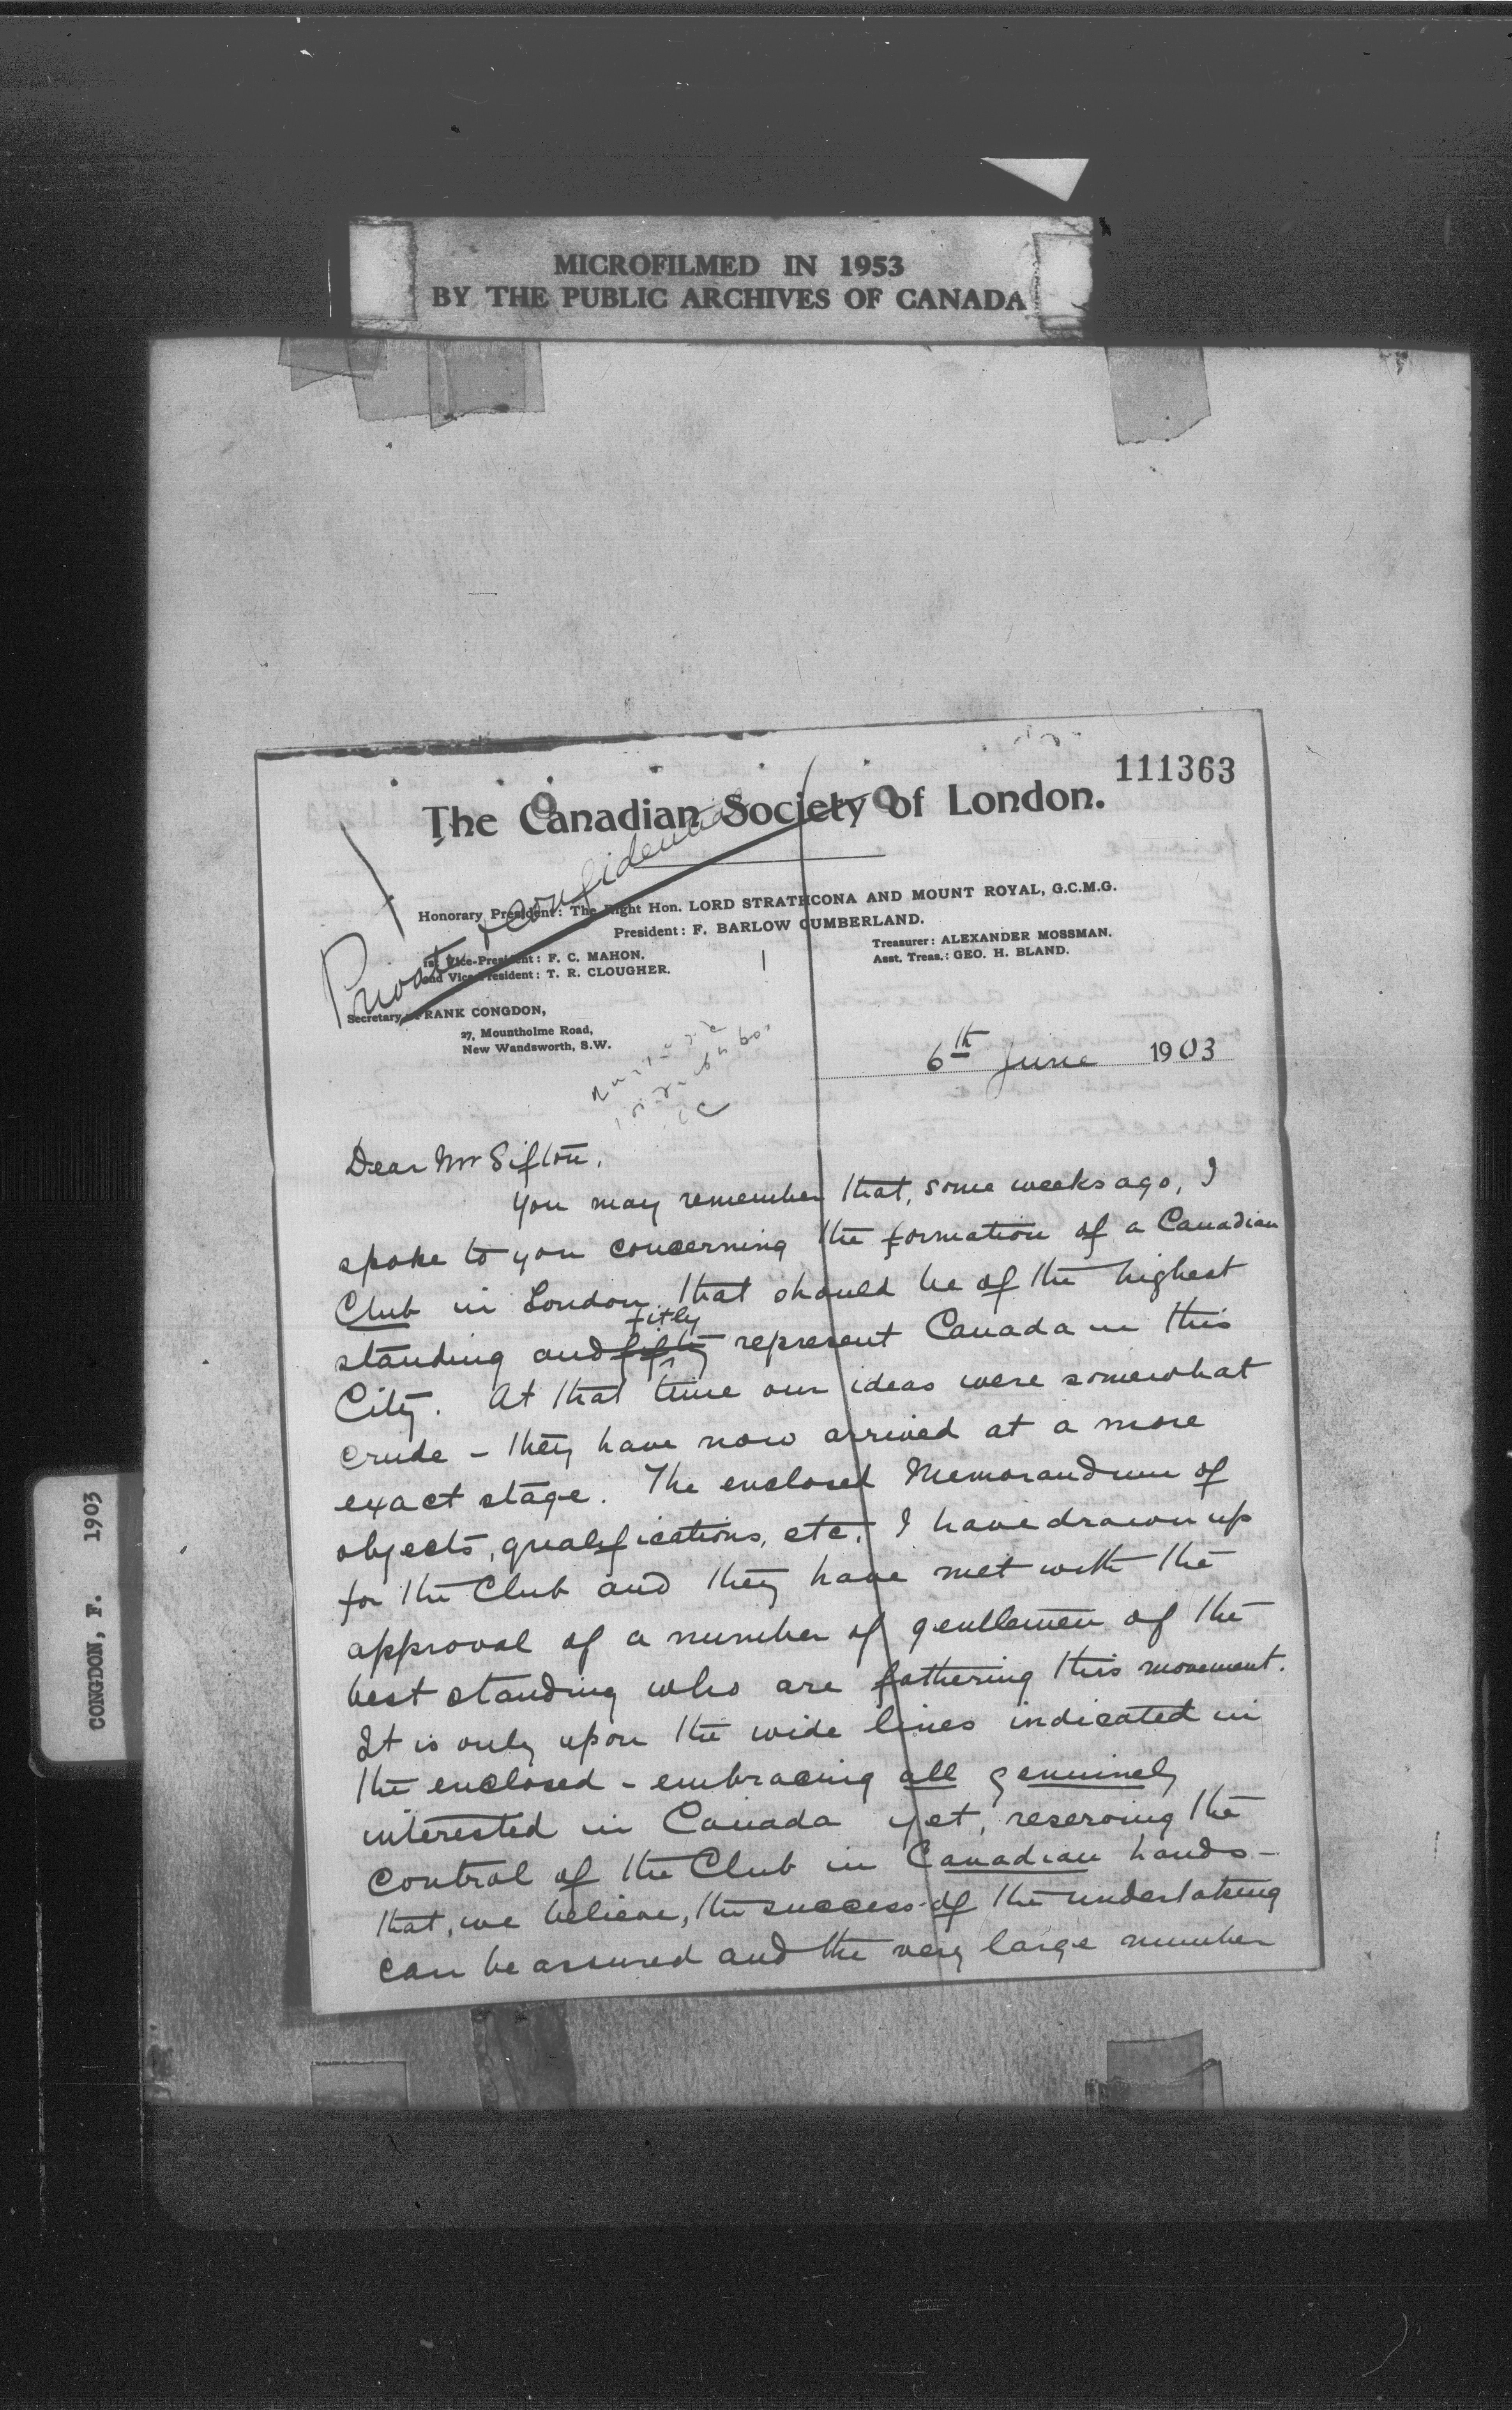 MICROFILMED IN 1953
BY THE PUBLIC ARCHIVES OF CANADA
111363
The Canadian Society of London.
Private & Confidential
Honorary President: The Right Hon. LORD STRATHCONA AND MOUNT ROYAL, G.C.M.G.
President: F. BARLOW CUMBERLAND.
1st Vice-President: F. C. MAHON.
2nd Vice-President: T. R. CLOUGHER.
Treasurer: ALEXANDER MOSSMAN.
Asst. Treas.: GEO. H. BLAND.
Secretary: FRANK CONGDON,
27, Mountholme Road,
New Wandsworth, S.W.
6th June 1903
Dear Mr Sifton,
You may remember that, some weeks ago, I
spoke to you concerning the formation of a Canadian
Club in London that should be of the highest
standing and fitly represent Canada in this
City. At that time our ideas were somewhat
crude - they have now arrived at a more
exact stage. The enclosed Memorandum of
objects, qualifications, etc, I have drawn up
for the Club and they have met with the
approval of a number of gentlemen of the
best standing who are fathering this movement.
It is only upon the wide lines indicated in
the enclosed - embracing all genuinely
interested in Canada yet, reserving the
control of the Club in Canadian hands -
that, we believe, the success of the undertaking
can be assured and the very large number
CONGDON, F. 1903